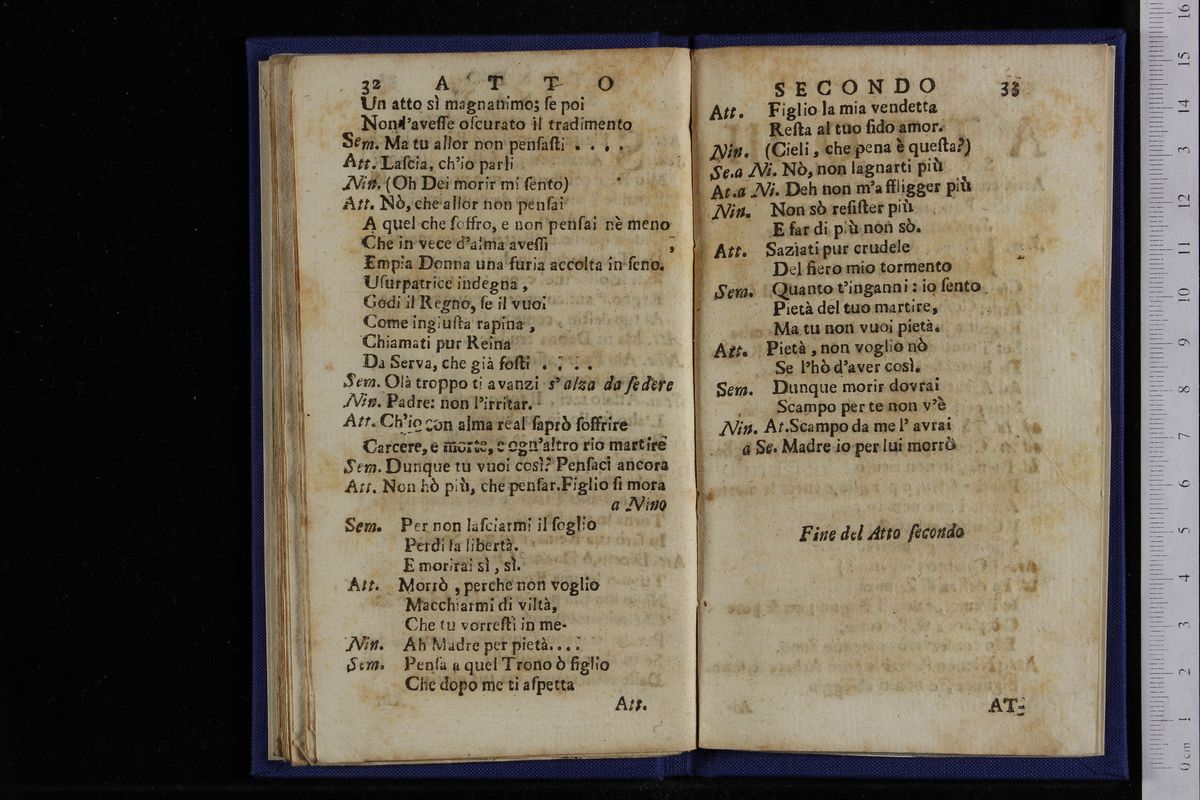 32 A T T O
Un atto sì magnanimo; ſe poi
Non l'aveſſe oſcurato il tradimento
Sem. Ma tu allor non penſaſti . . . .
Att. Laſcia, ch'io parli
Nin. (Oh Dei morir mi ſento)
Att. Nò, che allor non penſai
A quel che ſoffro, e non penſai nè meno
Che in vece d'alma aveſſi ,
Empia Donna una furia accolta in ſeno.
Uſurpatrice indegna ,
Godi il Regno, ſe il vuoi
Come ingiuſta rapina ,
Chiamati pur Reina
Da Serva, che già foſti . . . .
Sem. Olà troppo ti avanzi s'alza da ſedere
Nin. Padre: non l'irritar.
Att. Ch'io con alma real ſaprò ſoffrire
Carcere, e morte, e ogn'altro rio martire
Sem. Dunque tu vuoi così? Penſaci ancora
Att. Non hò più, che penſar. Figlio ſi mora
a Nino
Sem. Per non laſciarmi il ſoglio
Perdi la libertà.
E morirai sì, sì.
Att. Morrò , perche non voglio
Macchiarmi di viltà,
Che tu vorreſti in me-
Nin. Ah Madre per pietà....
Sem. Penſa a quel Trono ò figlio
Che dopo me ti aſpetta
Att.
SECONDO 33
Att. Figlio la mia vendetta
Reſta al tuo fido amor.
Nin. (Cieli , che pena è queſta?)
Se. a Ni. Nò, non lagnarti più
At. a Ni. Deh non m'affligger più
Nin. Non sò reſiſter più
E far di più non sò.
Att. Saziati pur crudele
Del fiero mio tormento
Sem. Quanto t'inganni : io ſento
Pietà del tuo martire,
Ma tu non vuoi pietà.
Att. Pietà , non voglio nò
Se l'hò d'aver così.
Sem. Dunque morir dovrai
Scampo per te non v'è
Nin. At. Scampo da me l' avrai
a Se. Madre io per lui morrò
Fine del Atto ſecondo
AT-